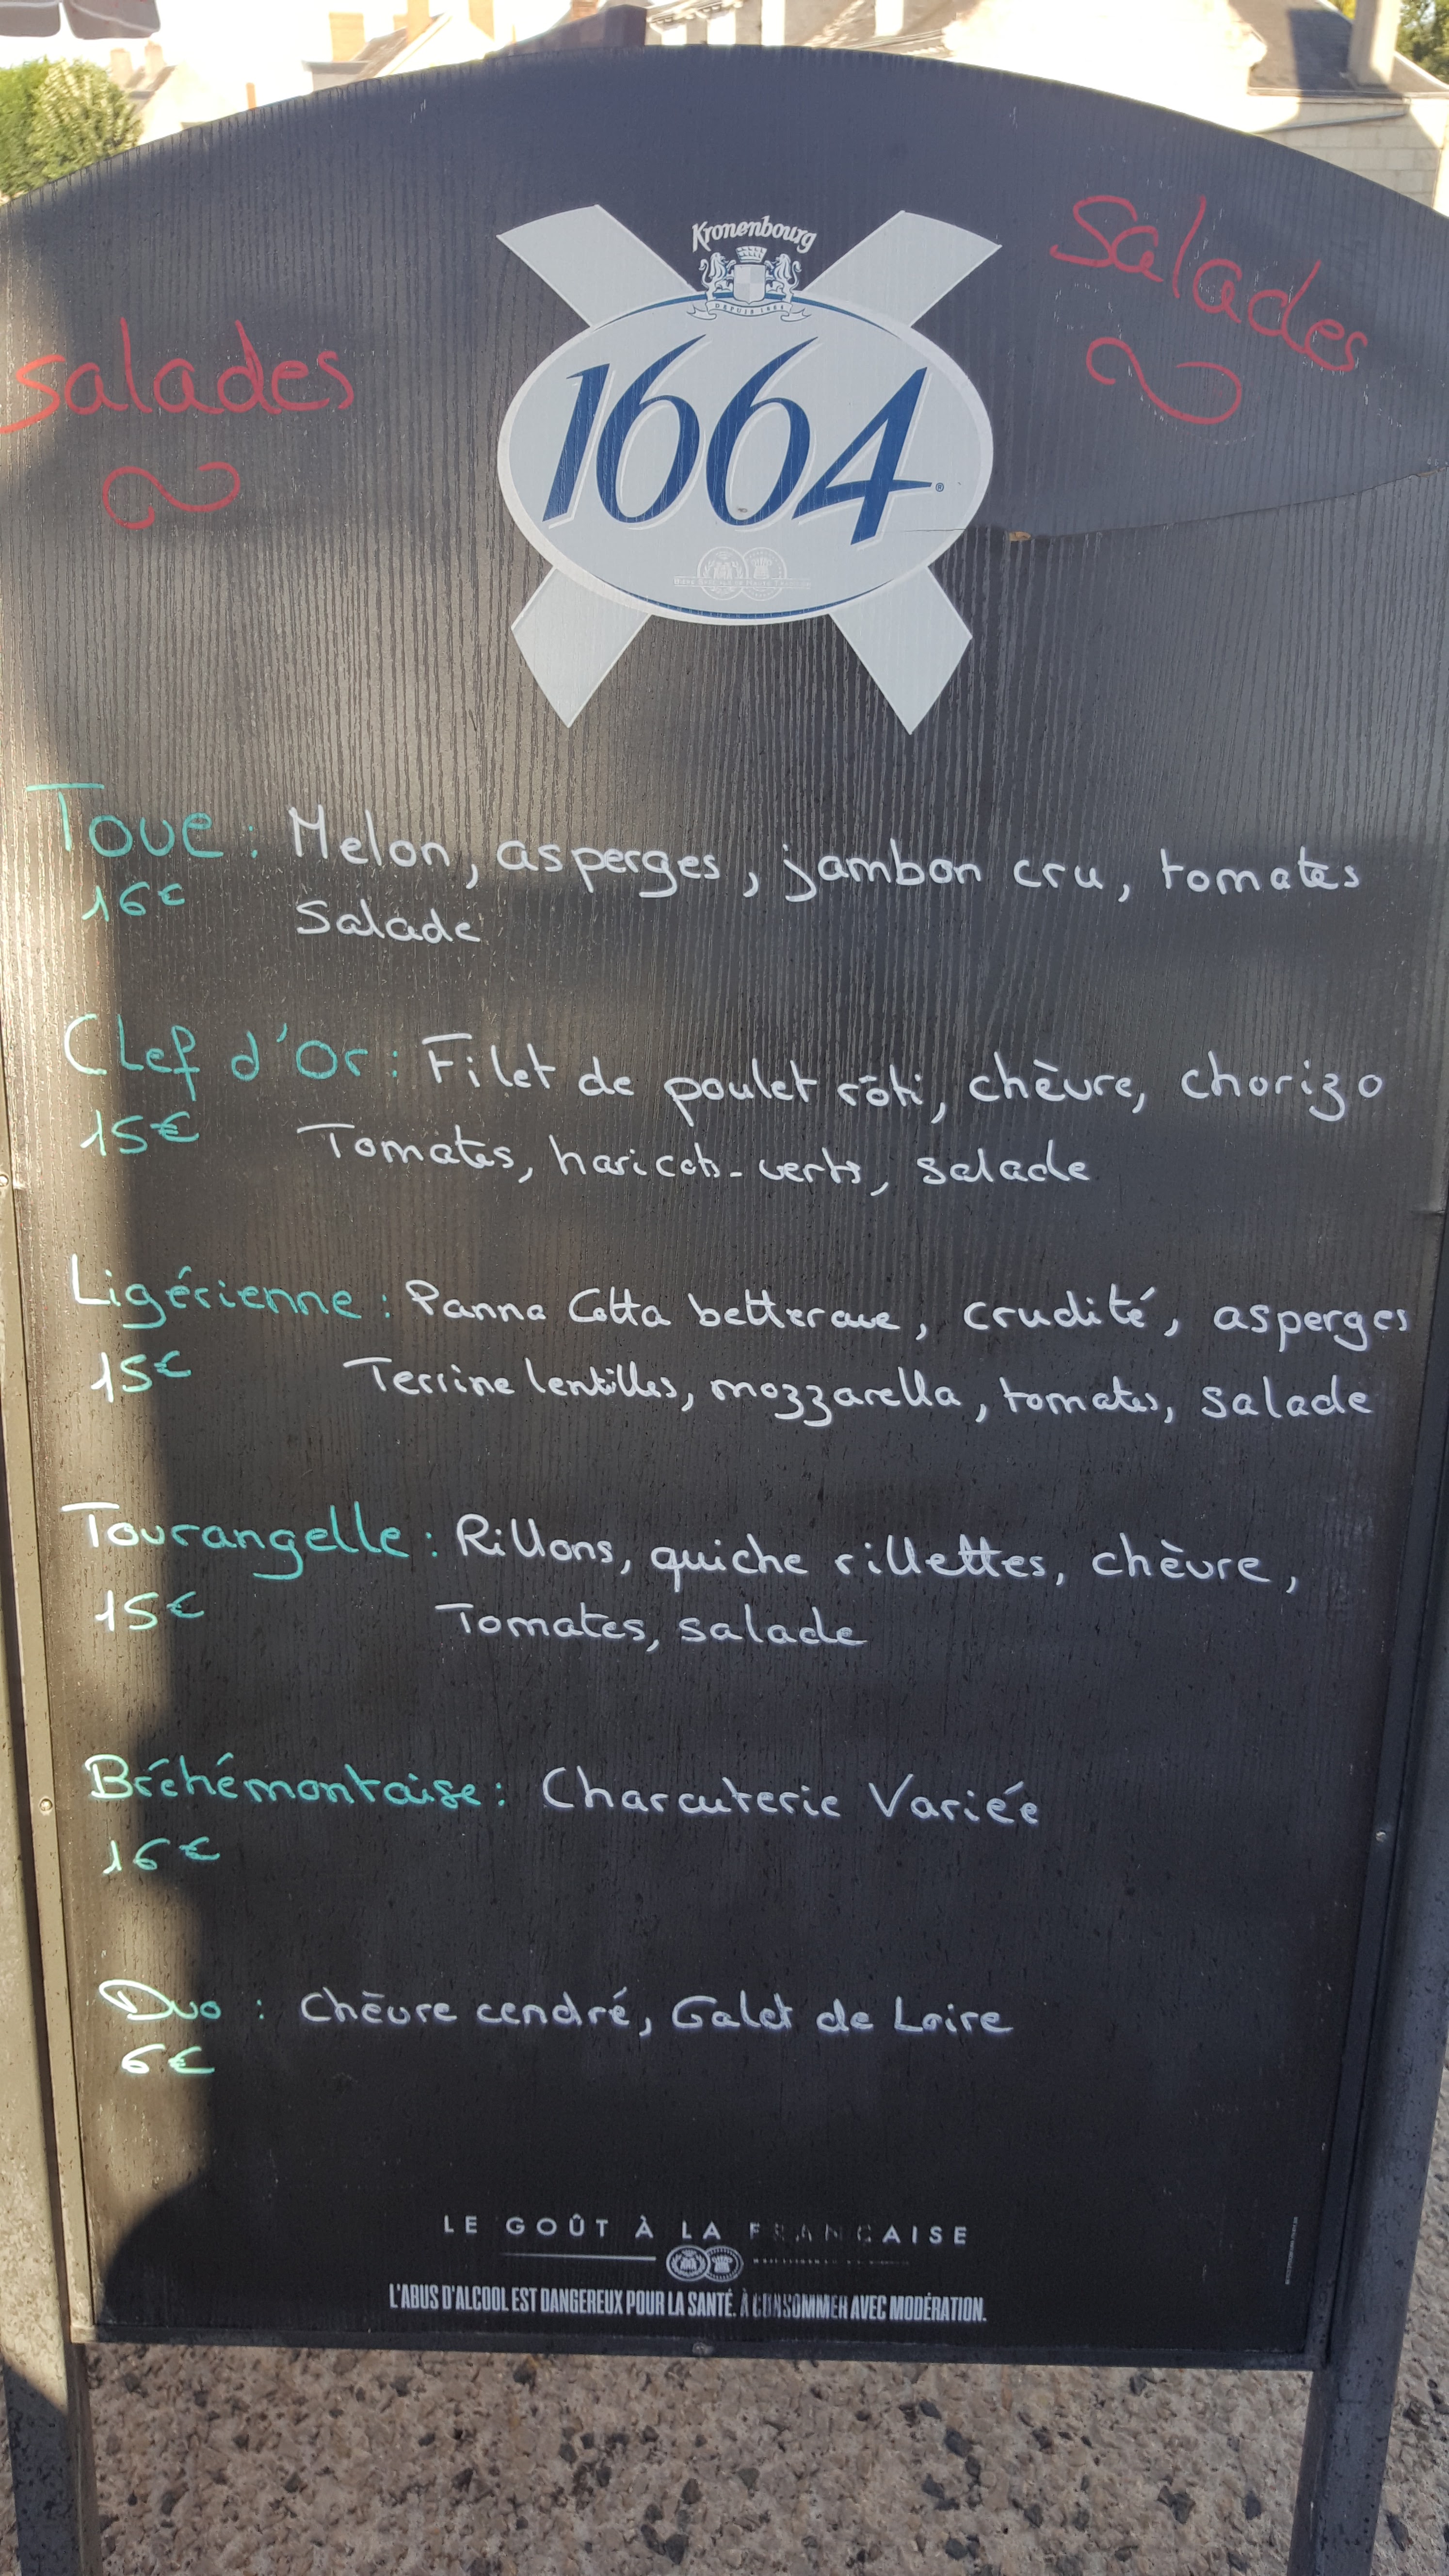 Kronenbourg
DEPUIS 1664
1664
salades
Salades
Toue : Melon, asperges, jambon cru, tomates
16€ Salade
Clef d'Or : Filet de poulet rôti, chèvre, chorizo
15€ Tomates, haricots-verts, salade
Ligérienne : Panna Cotta betterave, crudité, asperges
15€ Terrine lentilles, mozzarella, tomates, salade
Tourangelle : Rillons, quiche rillettes, chèvre,
15€ Tomates, salade
Bréhémontaise : Charcuterie Variée
16€
Duo : Chèvre cendré, Galet de Loire
6€
LE GOÛT À LA FRANÇAISE
L'ABUS D'ALCOOL EST DANGEREUX POUR LA SANTÉ. À CONSOMMER AVEC MODÉRATION.